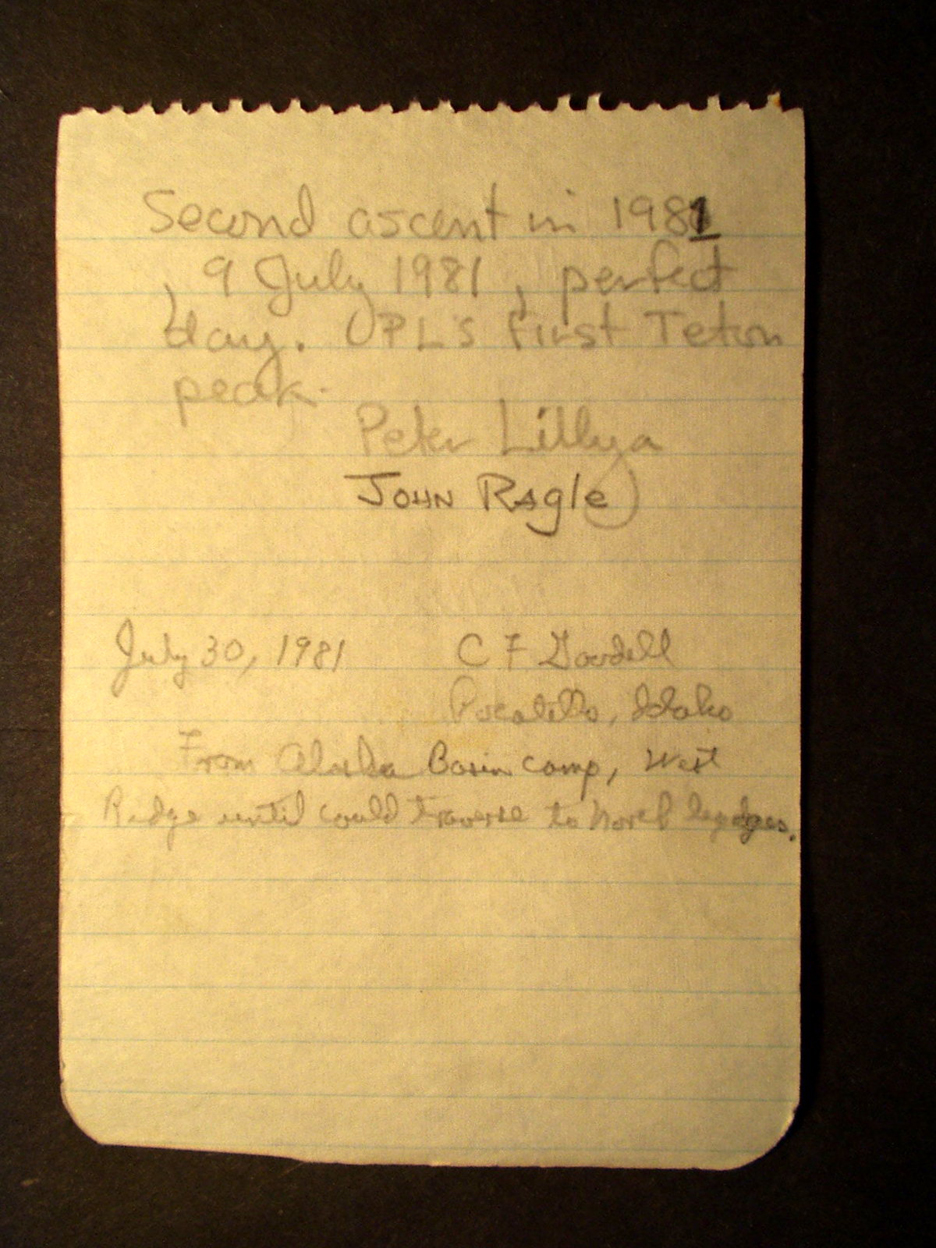 Second ascent in 1981
, 9 July 1981, perfect
day. OPL's first Teton
peak.
Peter Lillya
JOHN RAgle
July 30, 1981 C F
Pocatello, Idaho
From Alaska Basin camp, West
Ridge until could traverse to North